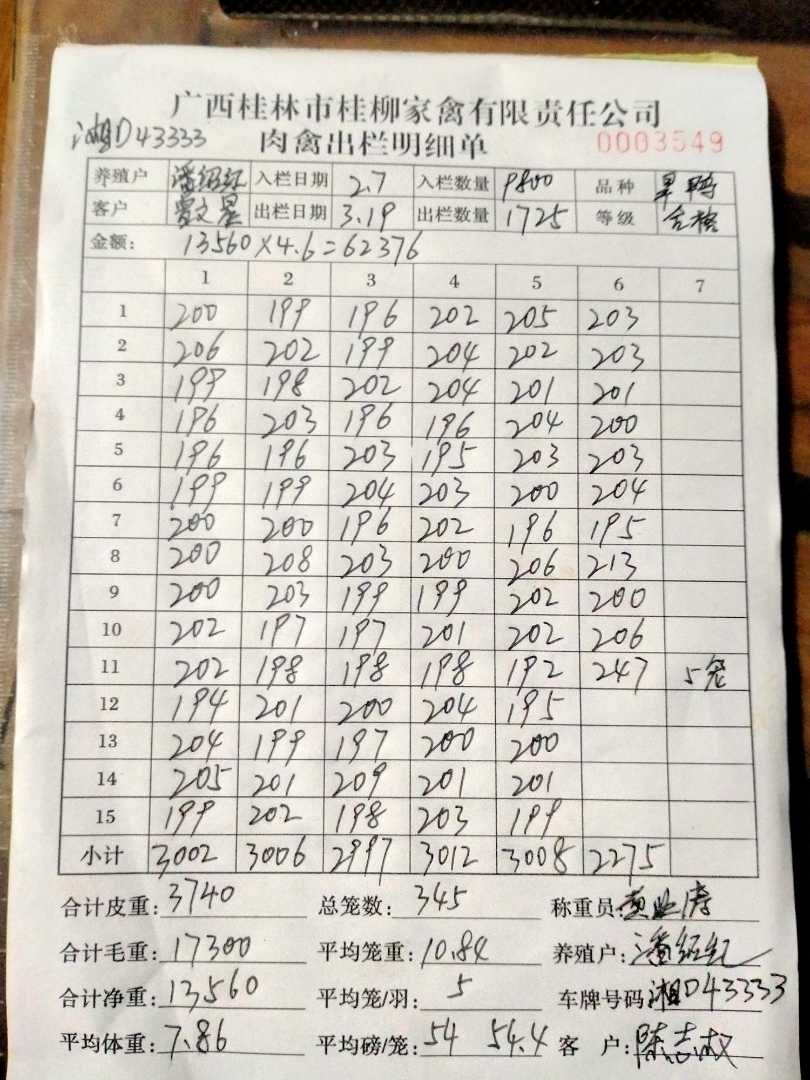 广西桂林市桂柳家禽有限责任公司
湘D43333 肉禽出栏明细单 0003549
养殖户 潘绍红 入栏日期 2.7 入栏数量 9800 品种 旱鸭
客户 出栏日期 3.19 出栏数量 1725 等级 合格
金额: 13560×4.6=62376
1 2 3 4 5 6 7
1 200 199 196 202 205 203
2 206 202 199 204 202 203
3 199 198 202 204 201 201
4 196 203 196 196 204 200
5 196 196 203 195 203 203
6 199 199 204 203 200 204
7 200 200 196 202 196 195
8 200 208 203 200 206 213
9 200 203 199 199 202 200
10 202 197 197 201 202 206
11 202 198 198 198 192 247 5笼
12 194 201 200 204 195
13 204 199 197 200 200
14 205 201 209 201 201
15 199 202 198 203 199
小计 3002 3006 2997 3012 3008 2275
合计皮重: 3740 总笼数: 345 称重员:
合计毛重: 17300 平均笼重: 10.84 养殖户: 潘绍红
合计净重: 13560 平均笼/羽: 5 车牌号码: 湘D43333
平均体重: 7.86 平均磅/笼: 54 54.4 客 户: 陈志